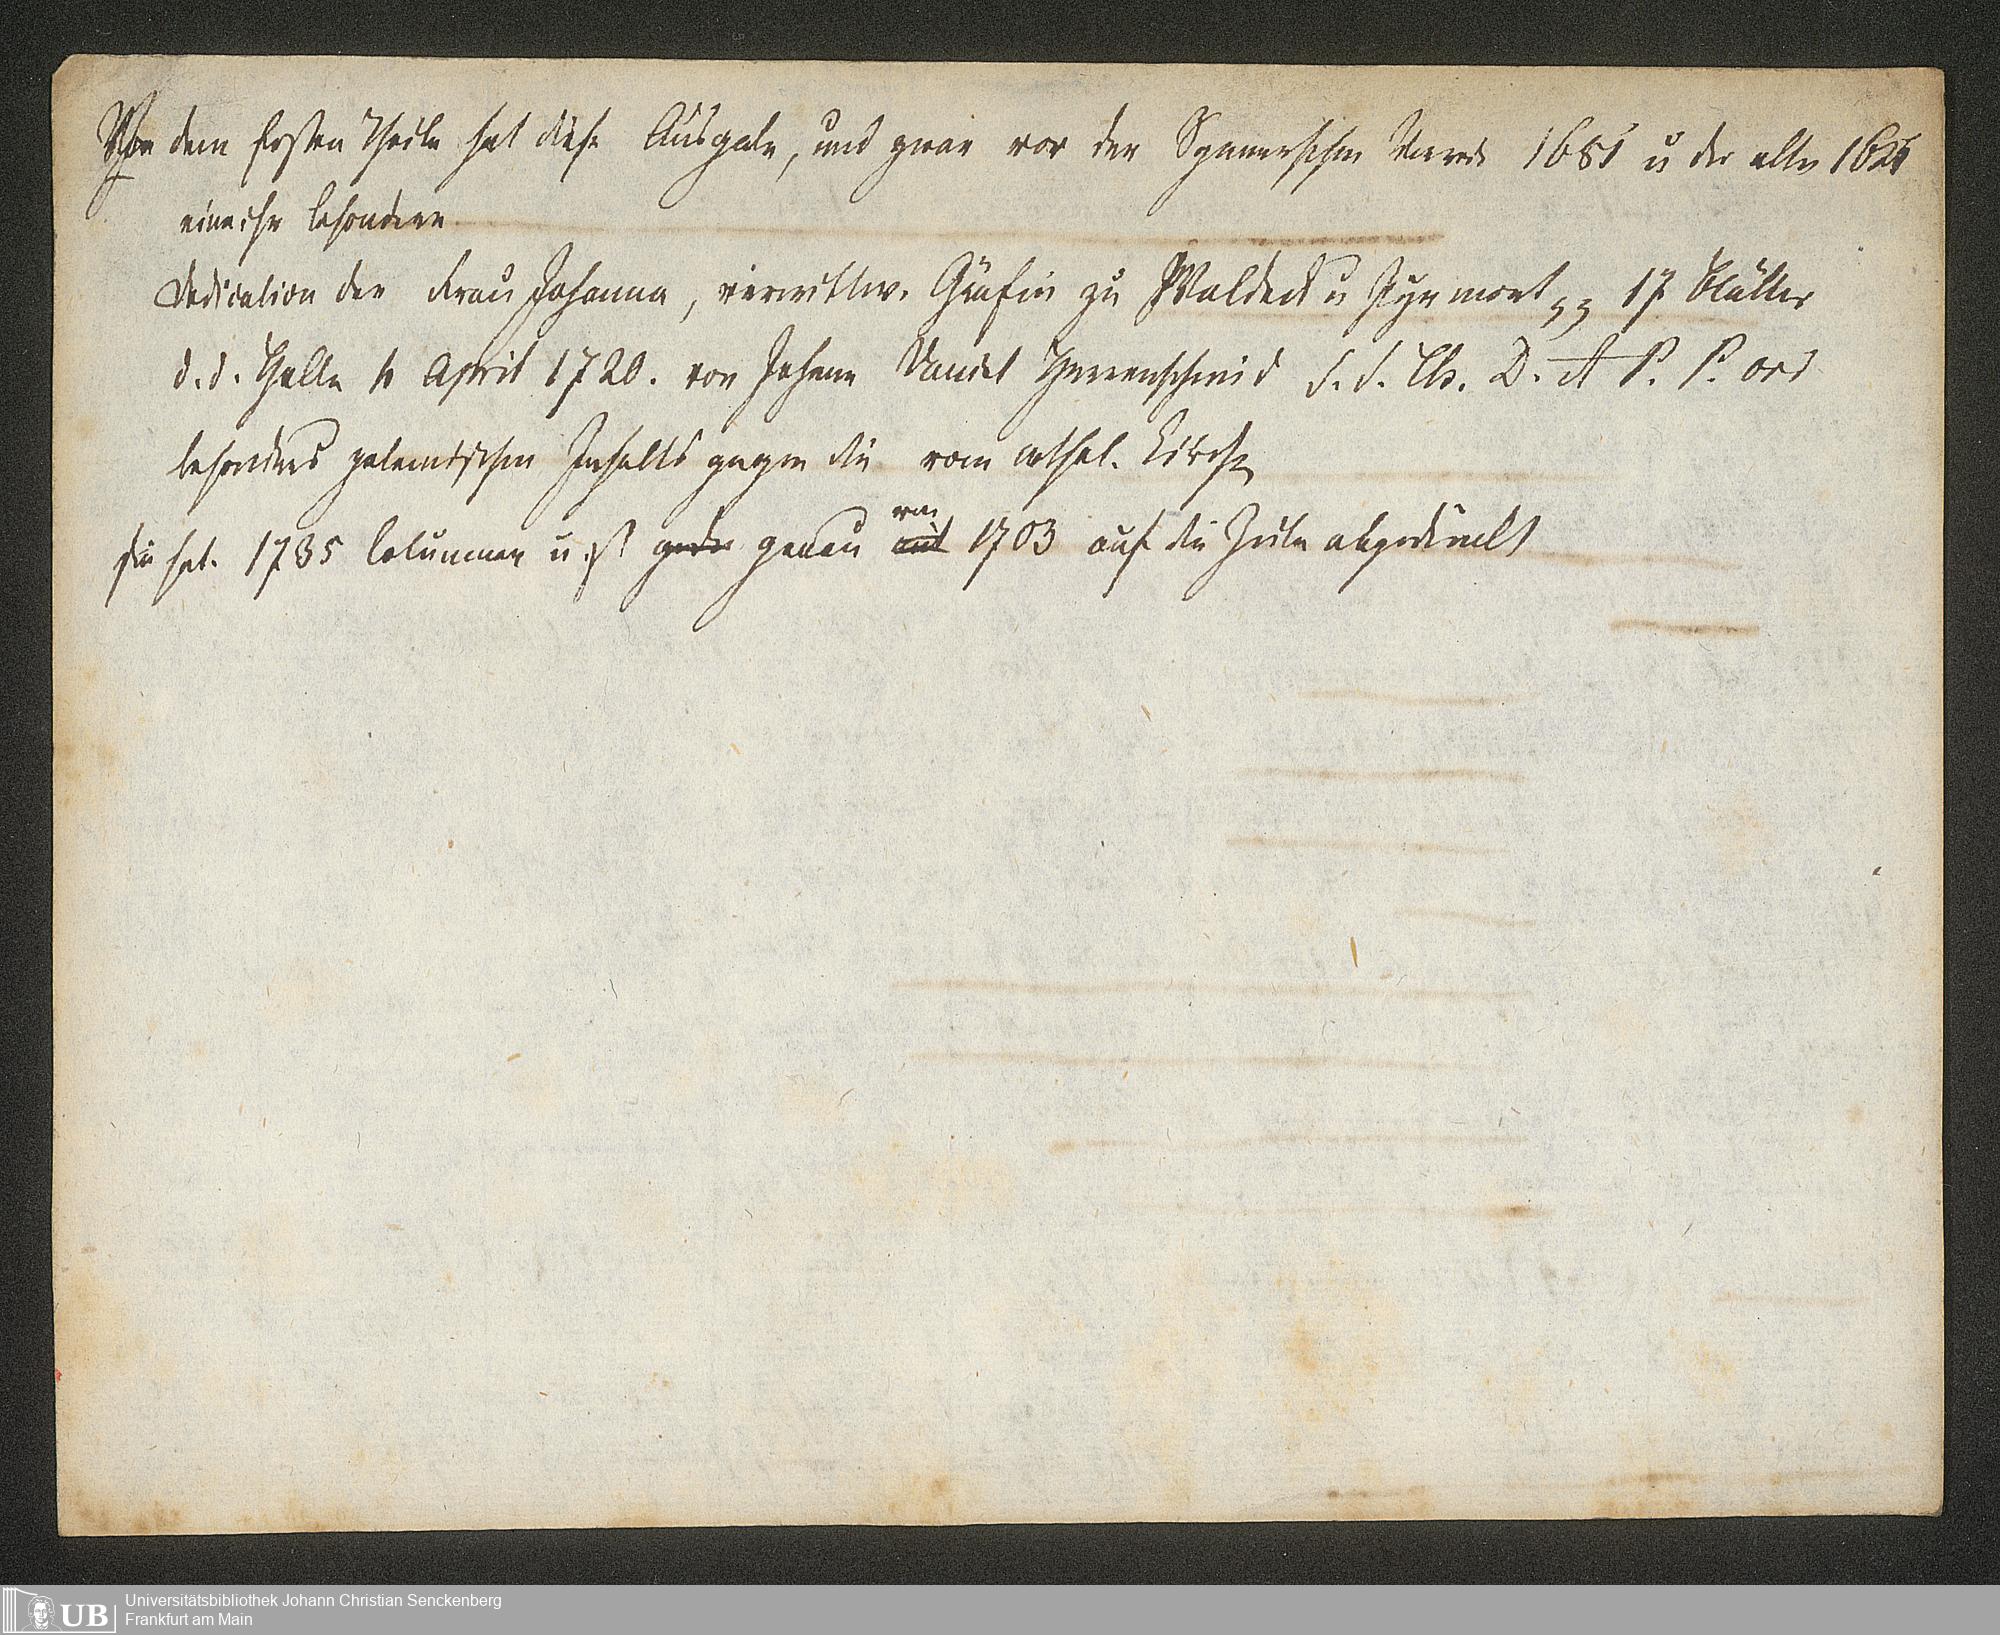 Vor dem ersten Theile hat diese Ausgabe, und zwar vor der Spenerschen Vorrede 1681 u der alten 1625
eine besondere
Dedication der Frau Johanna, verwittw. Gräfin zu Waldeck u Pyrmont 17 Blätter
d. d. Halle April 1720. von Johann Daniel Herrnschmid S. S. Th. D. P. P. ord
besonders polemischen Inhalts gegen die röm cathol. Kirche
Sie hat. 1735 Columnen u. ist genau von 1703 auf die Zeile abgedruckt
UB
Universitätsbibliothek Johann Christian Senckenberg
Frankfurt am Main